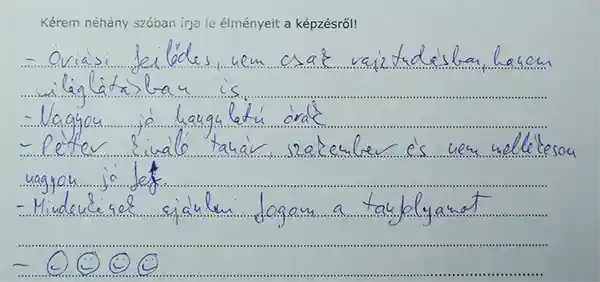 Kérem néhány szóban írja le élményeit a képzésről!
- Óriási fejlődés, nem csak rajztudásban, hanem
világlátásban is.
- Nagyon jó hangulatú órák
- Péter kiváló tanár, szakember és nem mellékesen
nagyon jó fej.
- Mindenkinek ajánlani fogom a tanfolyamot
- ☺ ☺ ☺ ☺